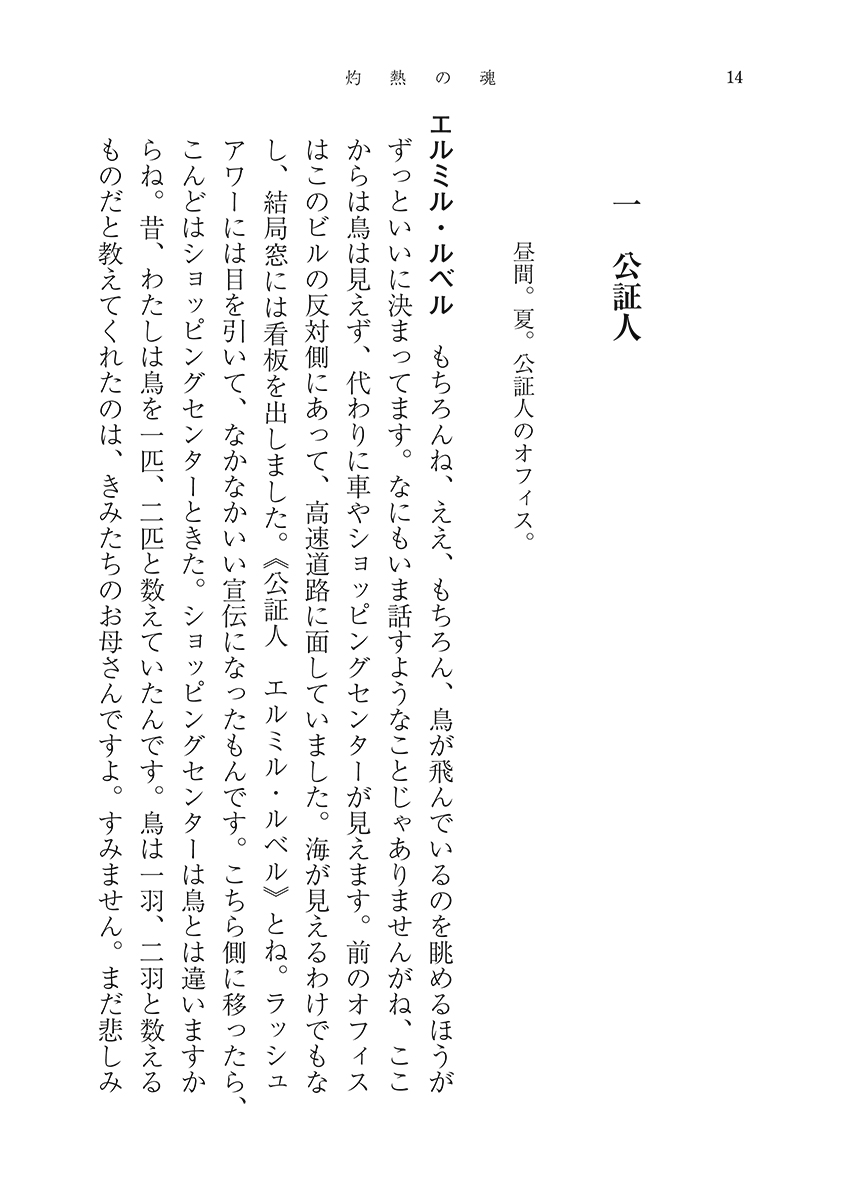 灼熱の魂
14
一　公証人
昼間。夏。公証人のオフィス。
エルミル・ルベル　もちろんね、ええ、もちろん、鳥が飛んでいるのを眺めるほうが
ずっといいに決まってます。なにもいま話すようなことじゃありませんがね、ここ
からは鳥は見えず、代わりに車やショッピングセンターが見えます。前のオフィス
はこのビルの反対側にあって、高速道路に面していました。海が見えるわけでもな
し、結局窓には看板を出しました。《公証人　エルミル・ルベル》とね。ラッシュ
アワーには目を引いて、なかなかいい宣伝になったもんです。こちら側に移ったら、
こんどはショッピングセンターときた。ショッピングセンターは鳥とは違いますか
らね。昔、わたしは鳥を一匹、二匹と数えていたんです。鳥は一羽、二羽と数える
ものだと教えてくれたのは、きみたちのお母さんですよ。すみません。まだ悲しみ